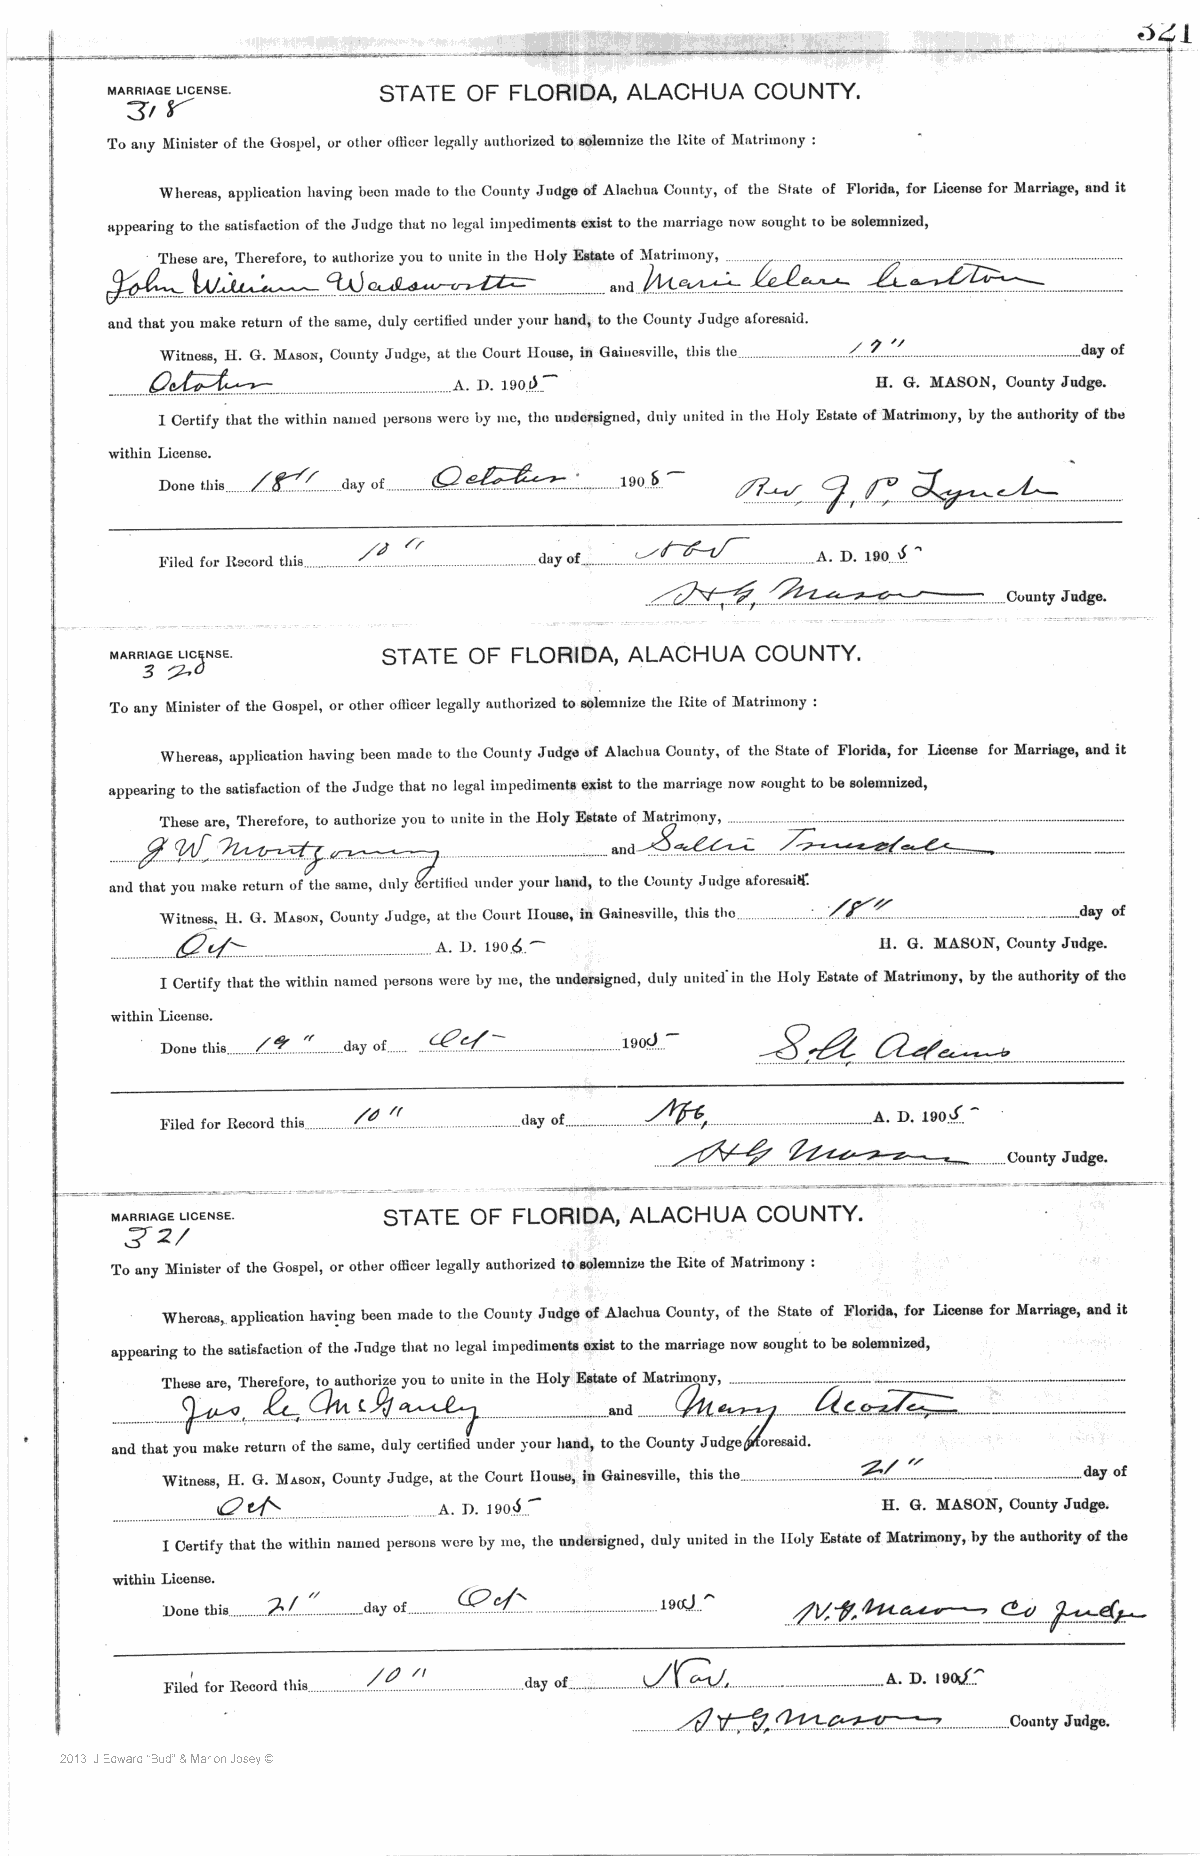 321
MARRIAGE LICENSE.
318
STATE OF FLORIDA, ALACHUA COUNTY.
To any Minister of the Gospel, or other officer legally authorized to solemnize the Rite of Matrimony :
Whereas, application having been made to the County Judge of Alachua County, of the State of Florida, for License for Marriage, and it
appearing to the satisfaction of the Judge that no legal impediments exist to the marriage now sought to be solemnized,
These are, Therefore, to authorize you to unite in the Holy Estate of Matrimony,
John William Wadsworth and Marie Clare Carlton
and that you make return of the same, duly certified under your hand, to the County Judge aforesaid.
Witness, H. G. MASON, County Judge, at the Court House, in Gainesville, this the 17" day of
October A. D. 1905 H. G. MASON, County Judge.
I Certify that the within named persons were by me, the undersigned, duly united in the Holy Estate of Matrimony, by the authority of the
within License.
Done this 18" day of October 1905 Rev, J, P, Lynch
Filed for Record this 10" day of Nov A. D. 1905
H, G, Mason County Judge.
MARRIAGE LICENSE.
320
STATE OF FLORIDA, ALACHUA COUNTY.
To any Minister of the Gospel, or other officer legally authorized to solemnize the Rite of Matrimony :
Whereas, application having been made to the County Judge of Alachua County, of the State of Florida, for License for Marriage, and it
appearing to the satisfaction of the Judge that no legal impediments exist to the marriage now sought to be solemnized,
These are, Therefore, to authorize you to unite in the Holy Estate of Matrimony,
J W, Montgomery and Sallie Truesdale
and that you make return of the same, duly certified under your hand, to the County Judge aforesaid.
Witness, H. G. MASON, County Judge, at the Court House, in Gainesville, this the 18" day of
Oct A. D. 1905 H. G. MASON, County Judge.
I Certify that the within named persons were by me, the undersigned, duly united in the Holy Estate of Matrimony, by the authority of the
within License.
Done this 19" day of Oct 1905 S. A, Adams
Filed for Record this 10" day of A. D. 1905
H G Mason County Judge.
MARRIAGE LICENSE.
321
STATE OF FLORIDA, ALACHUA COUNTY.
To any Minister of the Gospel, or other officer legally authorized to solemnize the Rite of Matrimony :
Whereas, application having been made to the County Judge of Alachua County, of the State of Florida, for License for Marriage, and it
appearing to the satisfaction of the Judge that no legal impediments exist to the marriage now sought to be solemnized,
These are, Therefore, to authorize you to unite in the Holy Estate of Matrimony,
Jas, C, McGauley and Mary Acosta
and that you make return of the same, duly certified under your hand, to the County Judge aforesaid.
Witness, H. G. MASON, County Judge, at the Court House, in Gainesville, this the 21" day of
Oct A. D. 1905 H. G. MASON, County Judge.
I Certify that the within named persons were by me, the undersigned, duly united in the Holy Estate of Matrimony, by the authority of the
within License.
Done this 21" day of Oct 1905 H. G. Mason Co Judge
Filed for Record this 10" day of Nov, A. D. 1905
H, G, Mason County Judge.
2013 J Edward "Bud" & Marion Josey ©